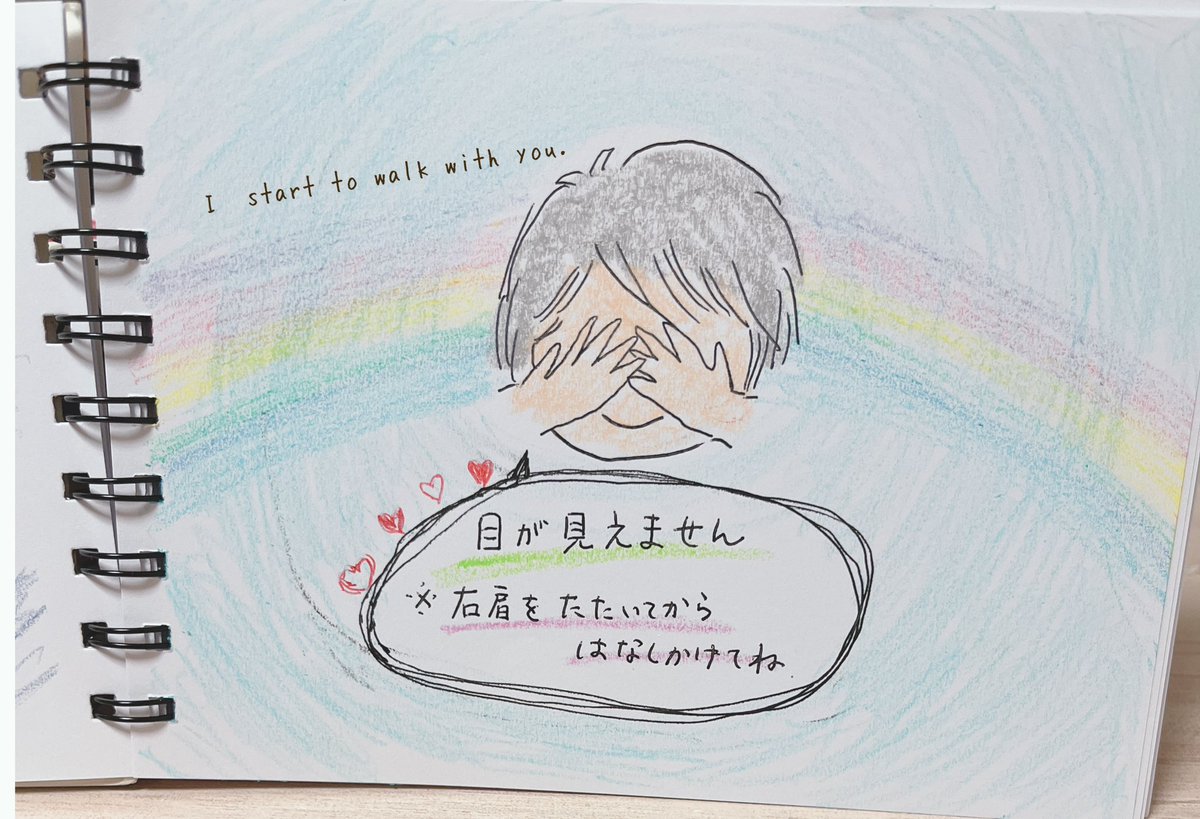 I start to walk with you.
目が見えません
※右肩をたたいてから
はなしかけてね